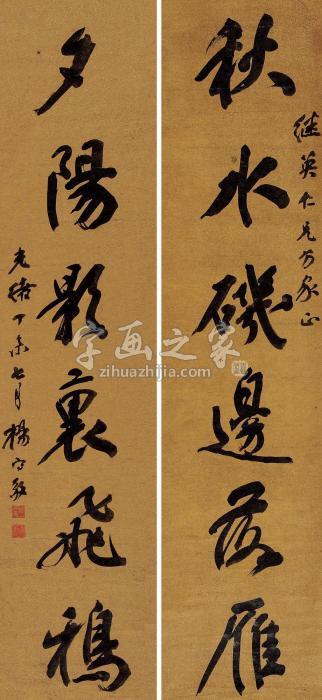 继英仁兄方家正
秋水磯邊落雁
夕陽影裏飛鴉
光緒丁未七月楊守敬
字画之家
zihuazhijia.com